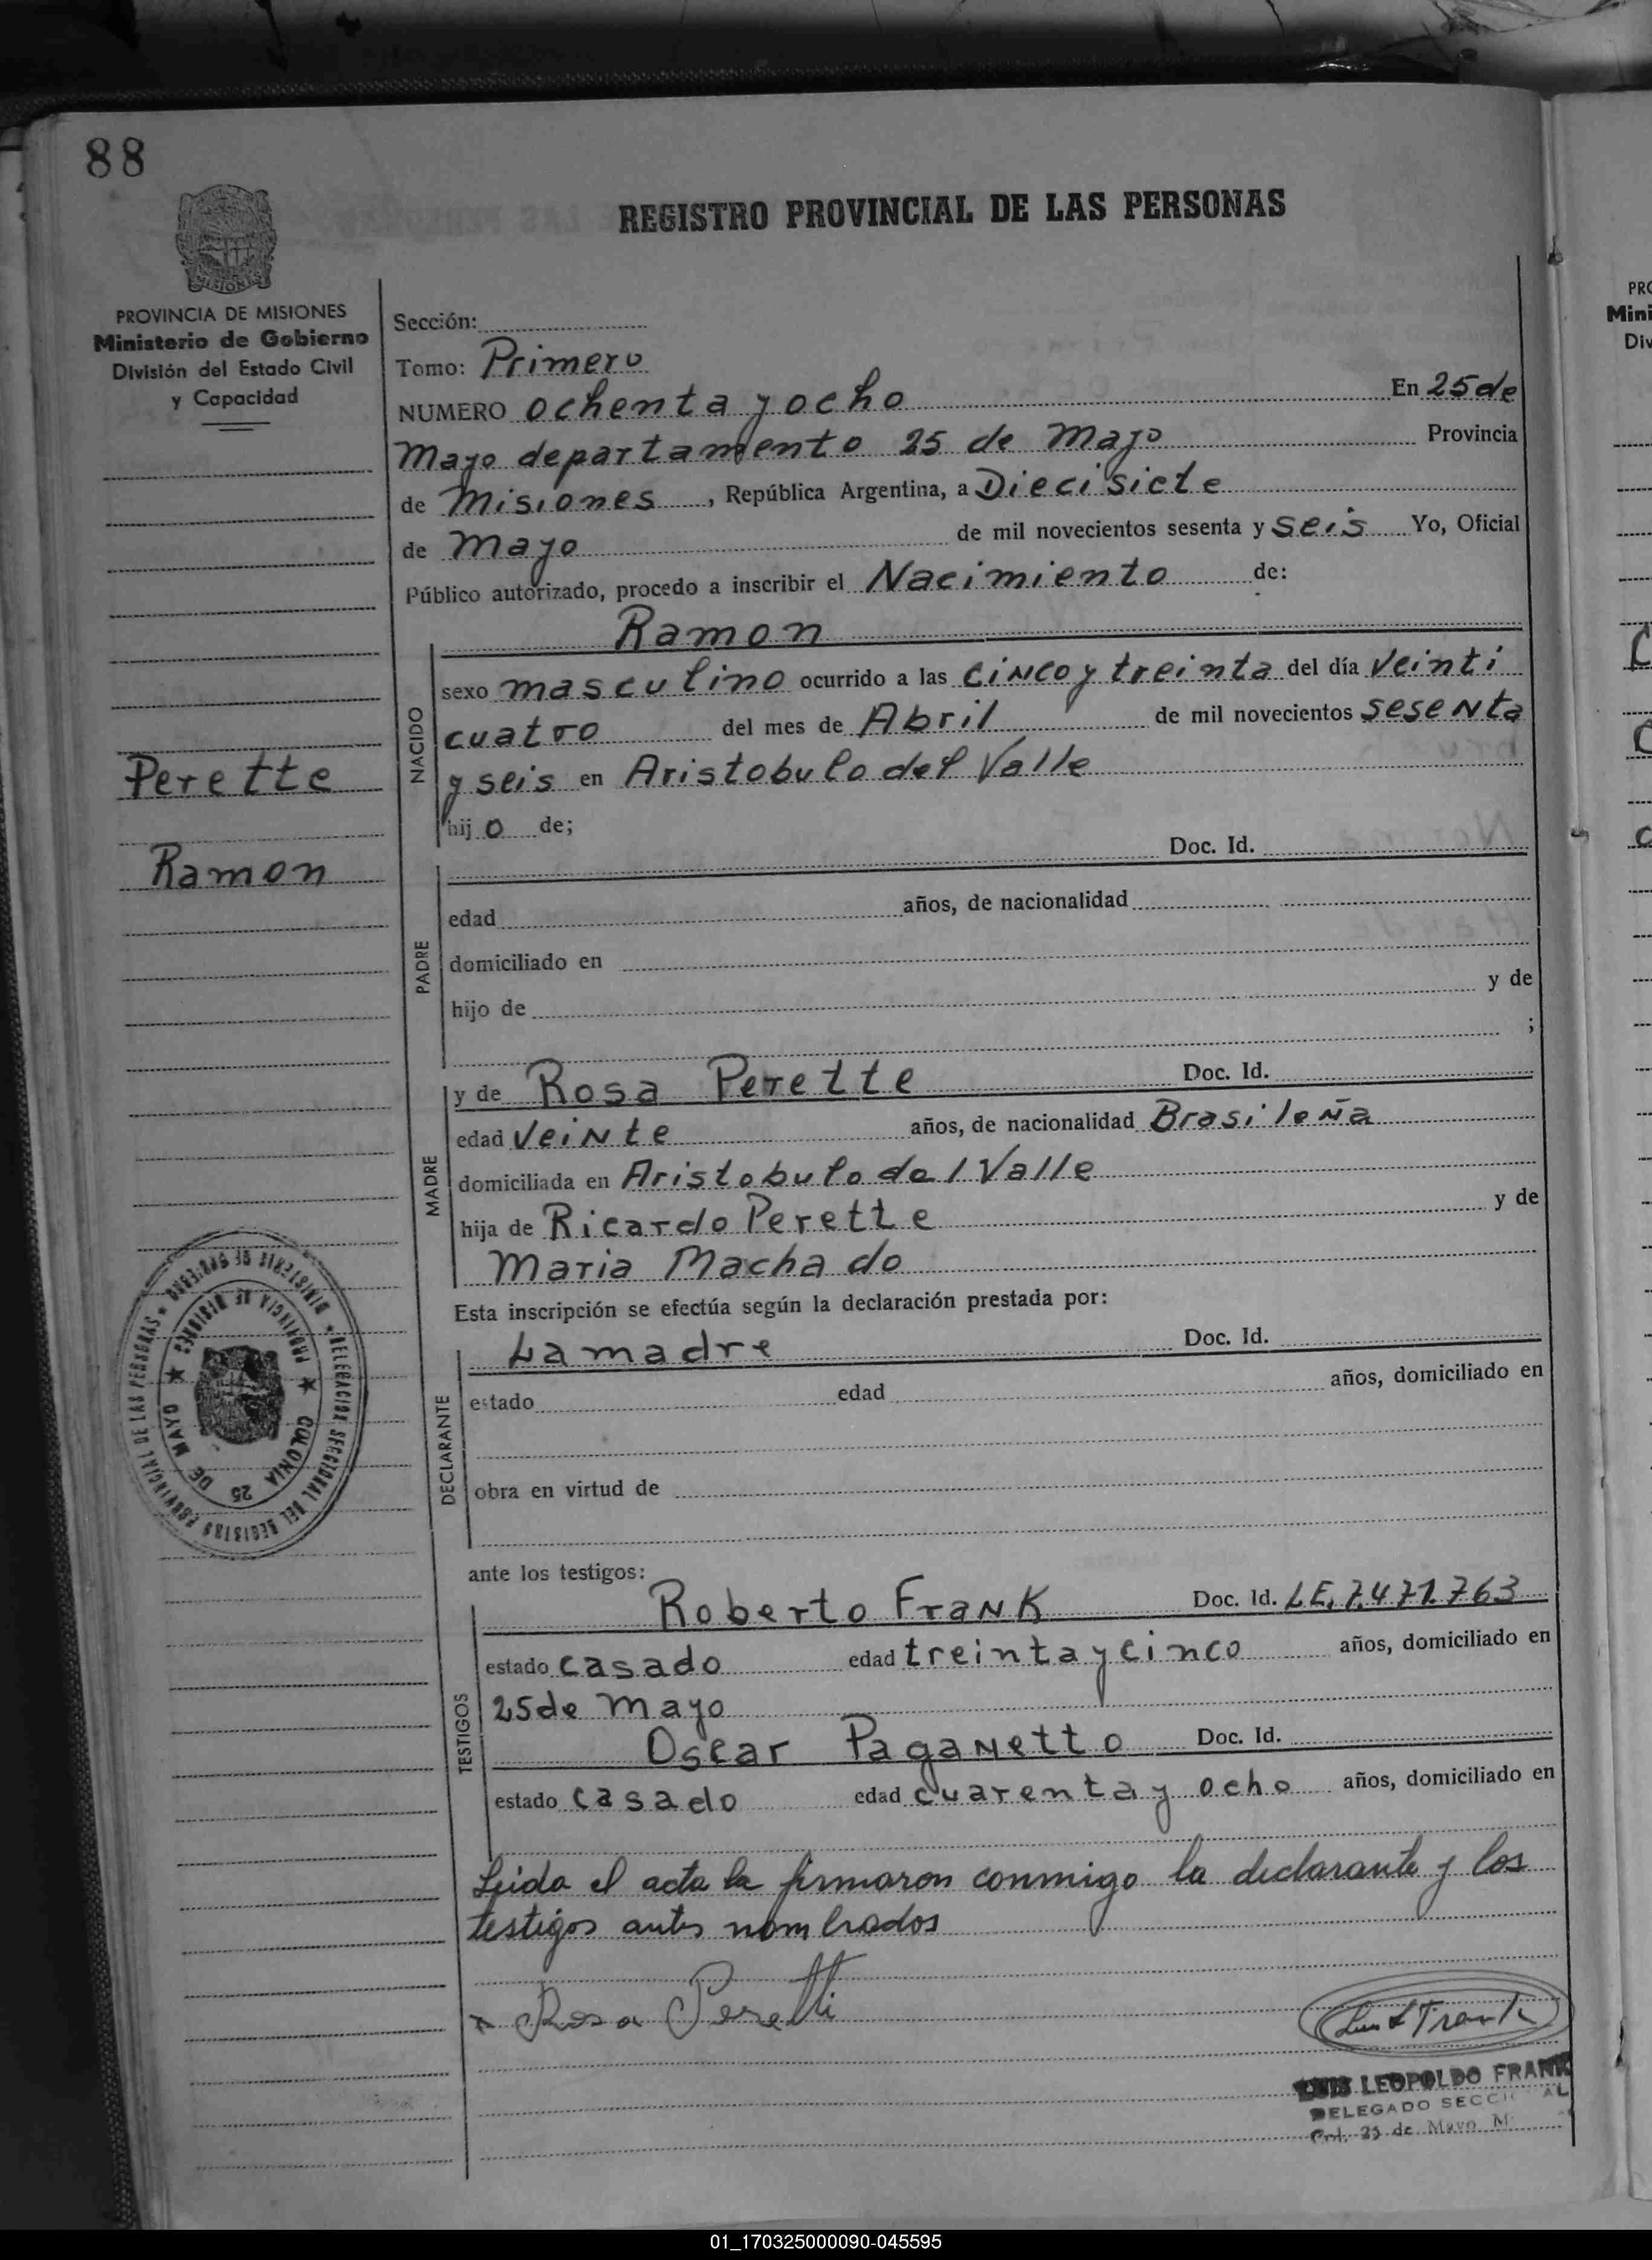 88
REGISTRO PROVINCIAL DE LAS PERSONAS
MISIONES
PROVINCIA DE MISIONES
Ministerio de Gobierno
División del Estado Civil
y Capacidad
Sección:
Tomo: Primero
NUMERO ochenta y ocho En 25 de
Mayo departamento 25 de Mayo Provincia
de Misiones, República Argentina, a Diecisiete
de Mayo de mil novecientos sesenta y seis Yo, Oficial
Público autorizado, procedo a inscribir el Nacimiento de:
Ramon
NACIDO
sexo masculino ocurrido a las cinco y treinta del día veinti
cuatro del mes de Abril de mil novecientos sesenta
y seis en Aristobulo del Valle
hijo de;
Perette
Ramon
Doc. Id.
PADRE
edad años, de nacionalidad
domiciliado en
hijo de y de
;
MADRE
y de Rosa Perette Doc. Id.
edad veinte años, de nacionalidad Brasileña
domiciliada en Aristobulo del Valle
hija de Ricardo Perette y de
Maria Machado
Esta inscripción se efectúa según la declaración prestada por:
La madre Doc. Id.
DECLARANTE
estado edad años, domiciliado en
obra en virtud de
MINISTERIO DE GOBIERNO * DELEGACION SECCIONAL DEL REGISTRO PROVINCIAL DE LAS PERSONAS *
PROVINCIA DE MISIONES ★ COLONIA 25 DE MAYO ★
ante los testigos:
TESTIGOS
Roberto Frank Doc. Id. LE. 7.471.763
estado casado edad treinta y cinco años, domiciliado en
25 de Mayo
Oscar Paganetto Doc. Id.
estado casado edad cuarenta y ocho años, domiciliado en
Leida el acta la firmaron conmigo la declarante y los
testigos antes nombrados
x Rosa Peretti
Frank
LUIS LEOPOLDO FRANK
DELEGADO SECCIONAL
Col. 25 de Mayo M
01_170325000090-045595